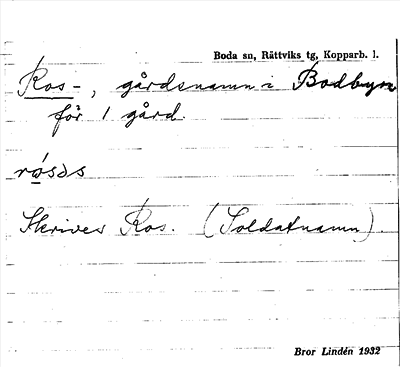 Boda sn, Rättviks tg, Kopparb. l.
Ros-, gårdsnamn i Bodbyn
för 1 gård.
rosas
Skrives Ros. (Soldatnamn).
Bror Lindén 1932